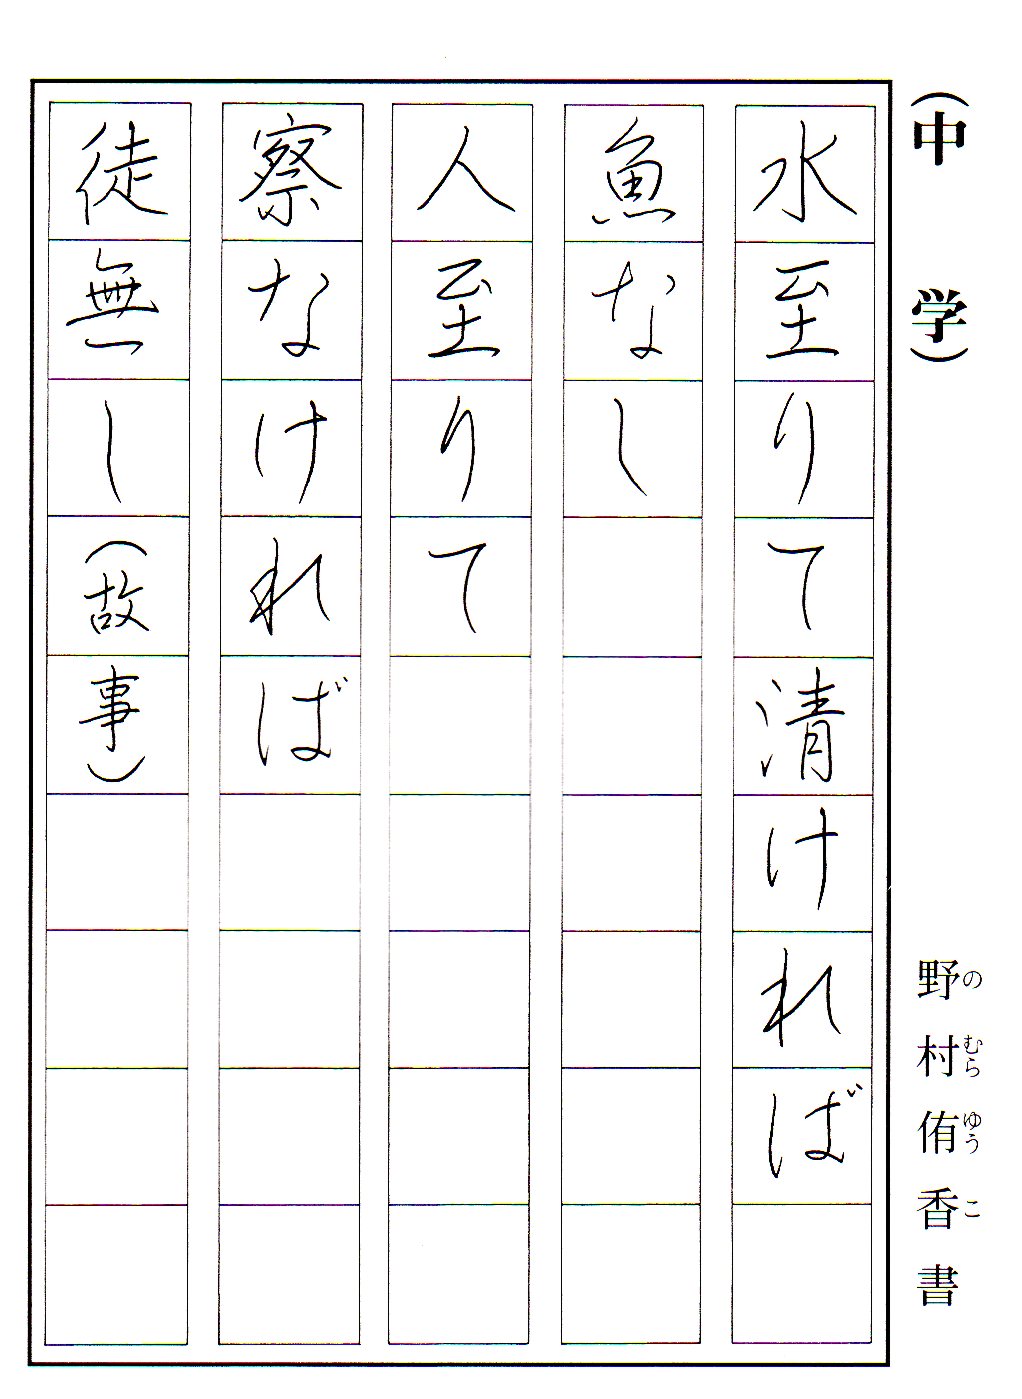 (中学)
野村侑香書
のむらゆうこ
水至りて清ければ
魚なし
人至りて
察なければ
徒無し(故事)